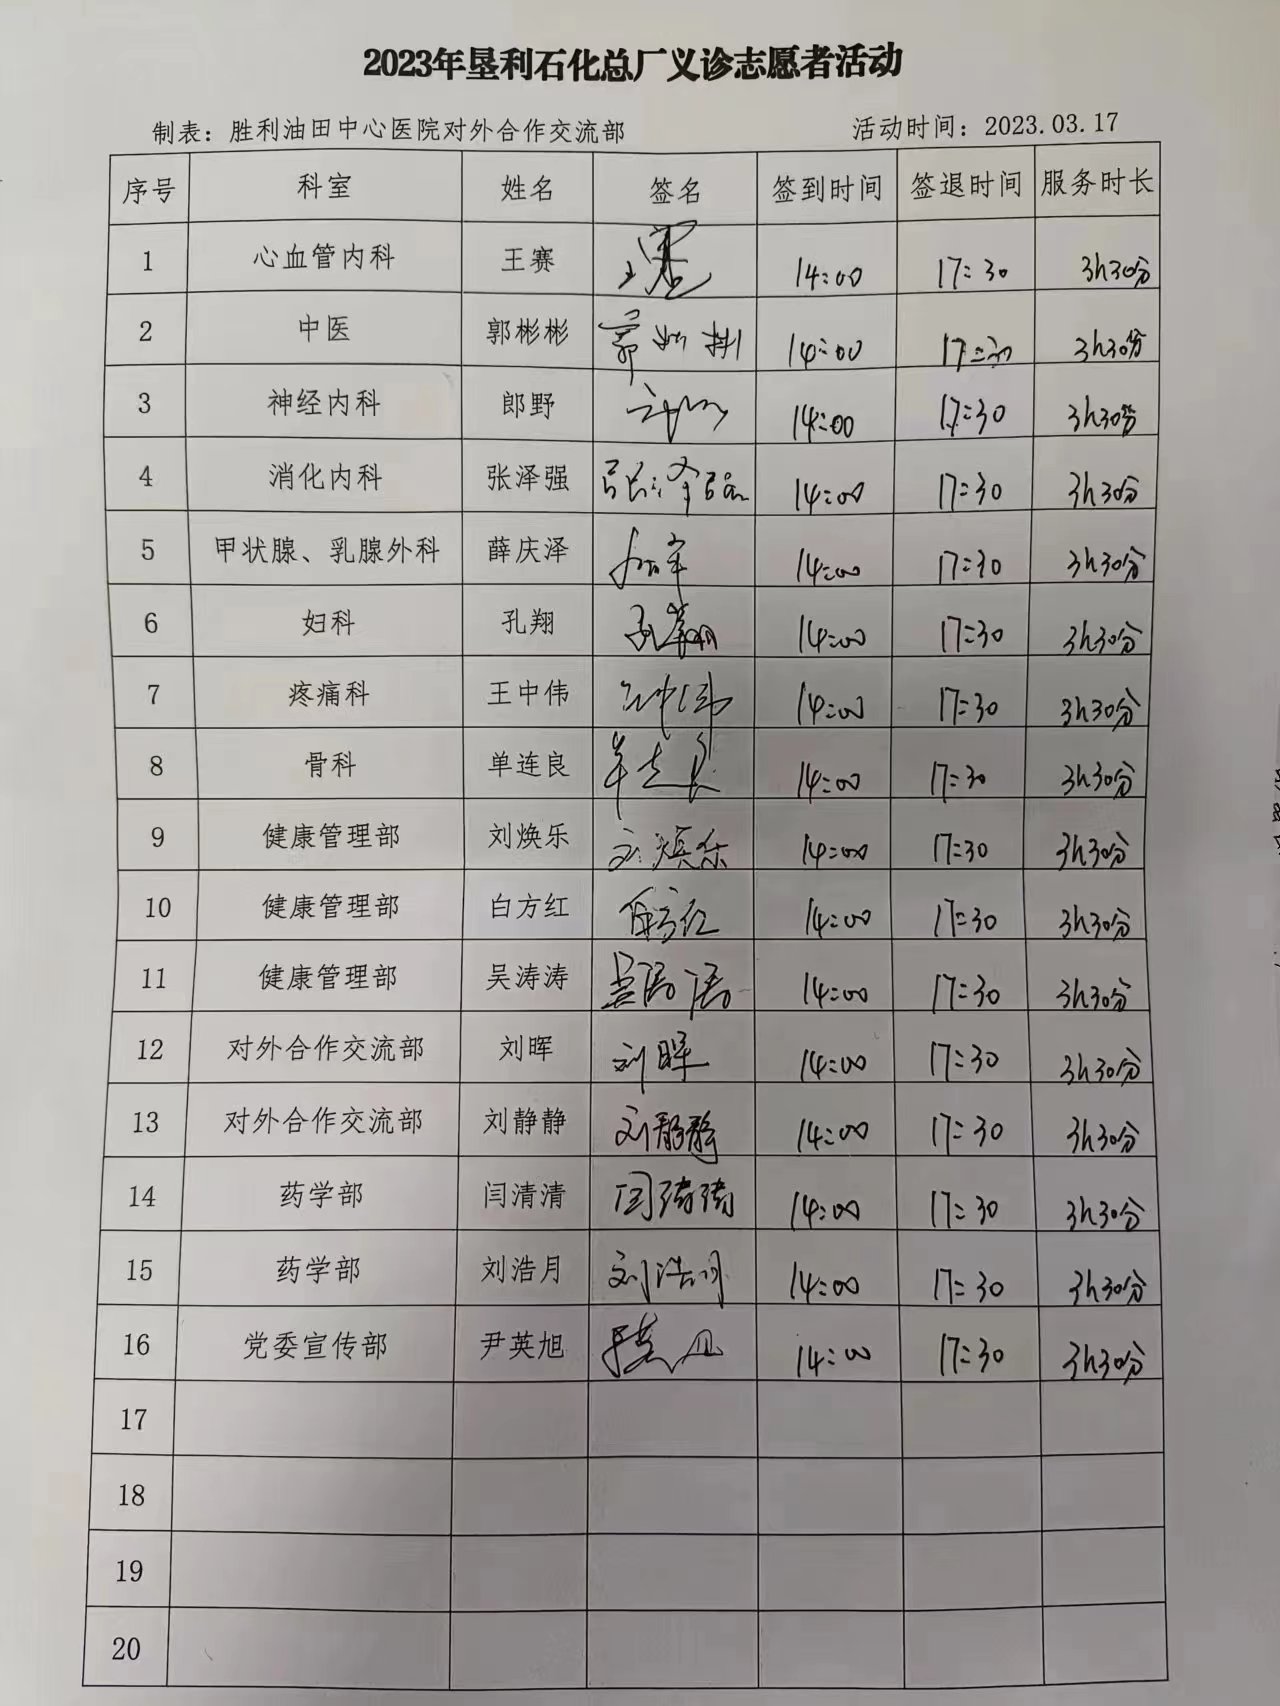 2023年垦利石化总厂义诊志愿者活动
制表：胜利油田中心医院对外合作交流部 活动时间：2023.03.17
序号 科室 姓名 签名 签到时间 签退时间 服务时长
1 心血管内科 王赛 14:00 17:30 3h30分
2 中医 郭彬彬 郭彬彬 14:00 17:30 3h30分
3 神经内科 郎野 14:00 17:30 3h30分
4 消化内科 张泽强 张泽强 14:00 17:30 3h30分
5 甲状腺、乳腺外科 薛庆泽 14:00 17:30 3h30分
6 妇科 孔翔 孔翔 14:00 17:30 3h30分
7 疼痛科 王中伟 王中伟 14:00 17:30 3h30分
8 骨科 单连良 单连良 14:00 17:30 3h30分
9 健康管理部 刘焕乐 刘焕乐 14:00 17:30 3h30分
10 健康管理部 白方红 白方红 14:00 17:30 3h30分
11 健康管理部 吴涛涛 吴涛涛 14:00 17:30 3h30分
12 对外合作交流部 刘晖 刘晖 14:00 17:30 3h30分
13 对外合作交流部 刘静静 刘静静 14:00 17:30 3h30分
14 药学部 闫清清 闫清清 14:00 17:30 3h30分
15 药学部 刘浩月 刘浩月 14:00 17:30 3h30分
16 党委宣传部 尹英旭 14:00 17:30 3h30分
17
18
19
20